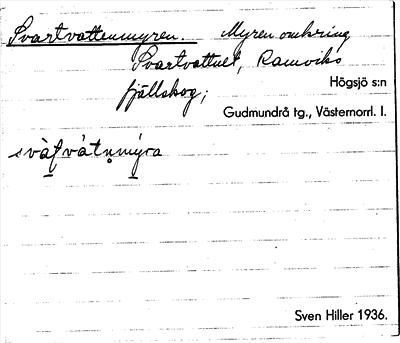 Svartvattenmyren. Myren omkring
Svartvattnet, Ramviks
fjällskog;
Högsjö s:n
Gudmundrå tg., Västernorrl. l.
svàt̠vàtn̥mýra
Sven Hiller 1936.